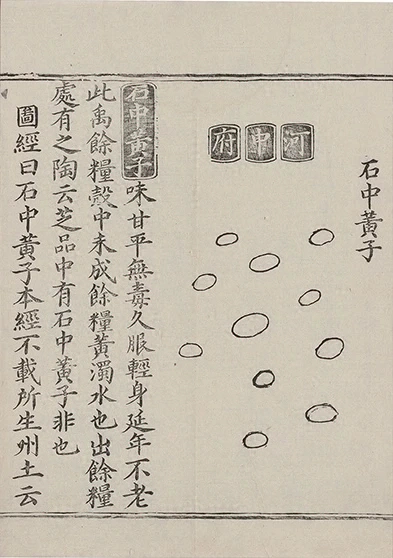 石中黃子
河中府
石中黃子味甘平無毒久服輕身延年不老
此禹餘糧殼中未成餘糧黃濁水也出餘糧
處有之陶云芝品中有石中黃子非也
圖經曰石中黃子本經不載所生州土云